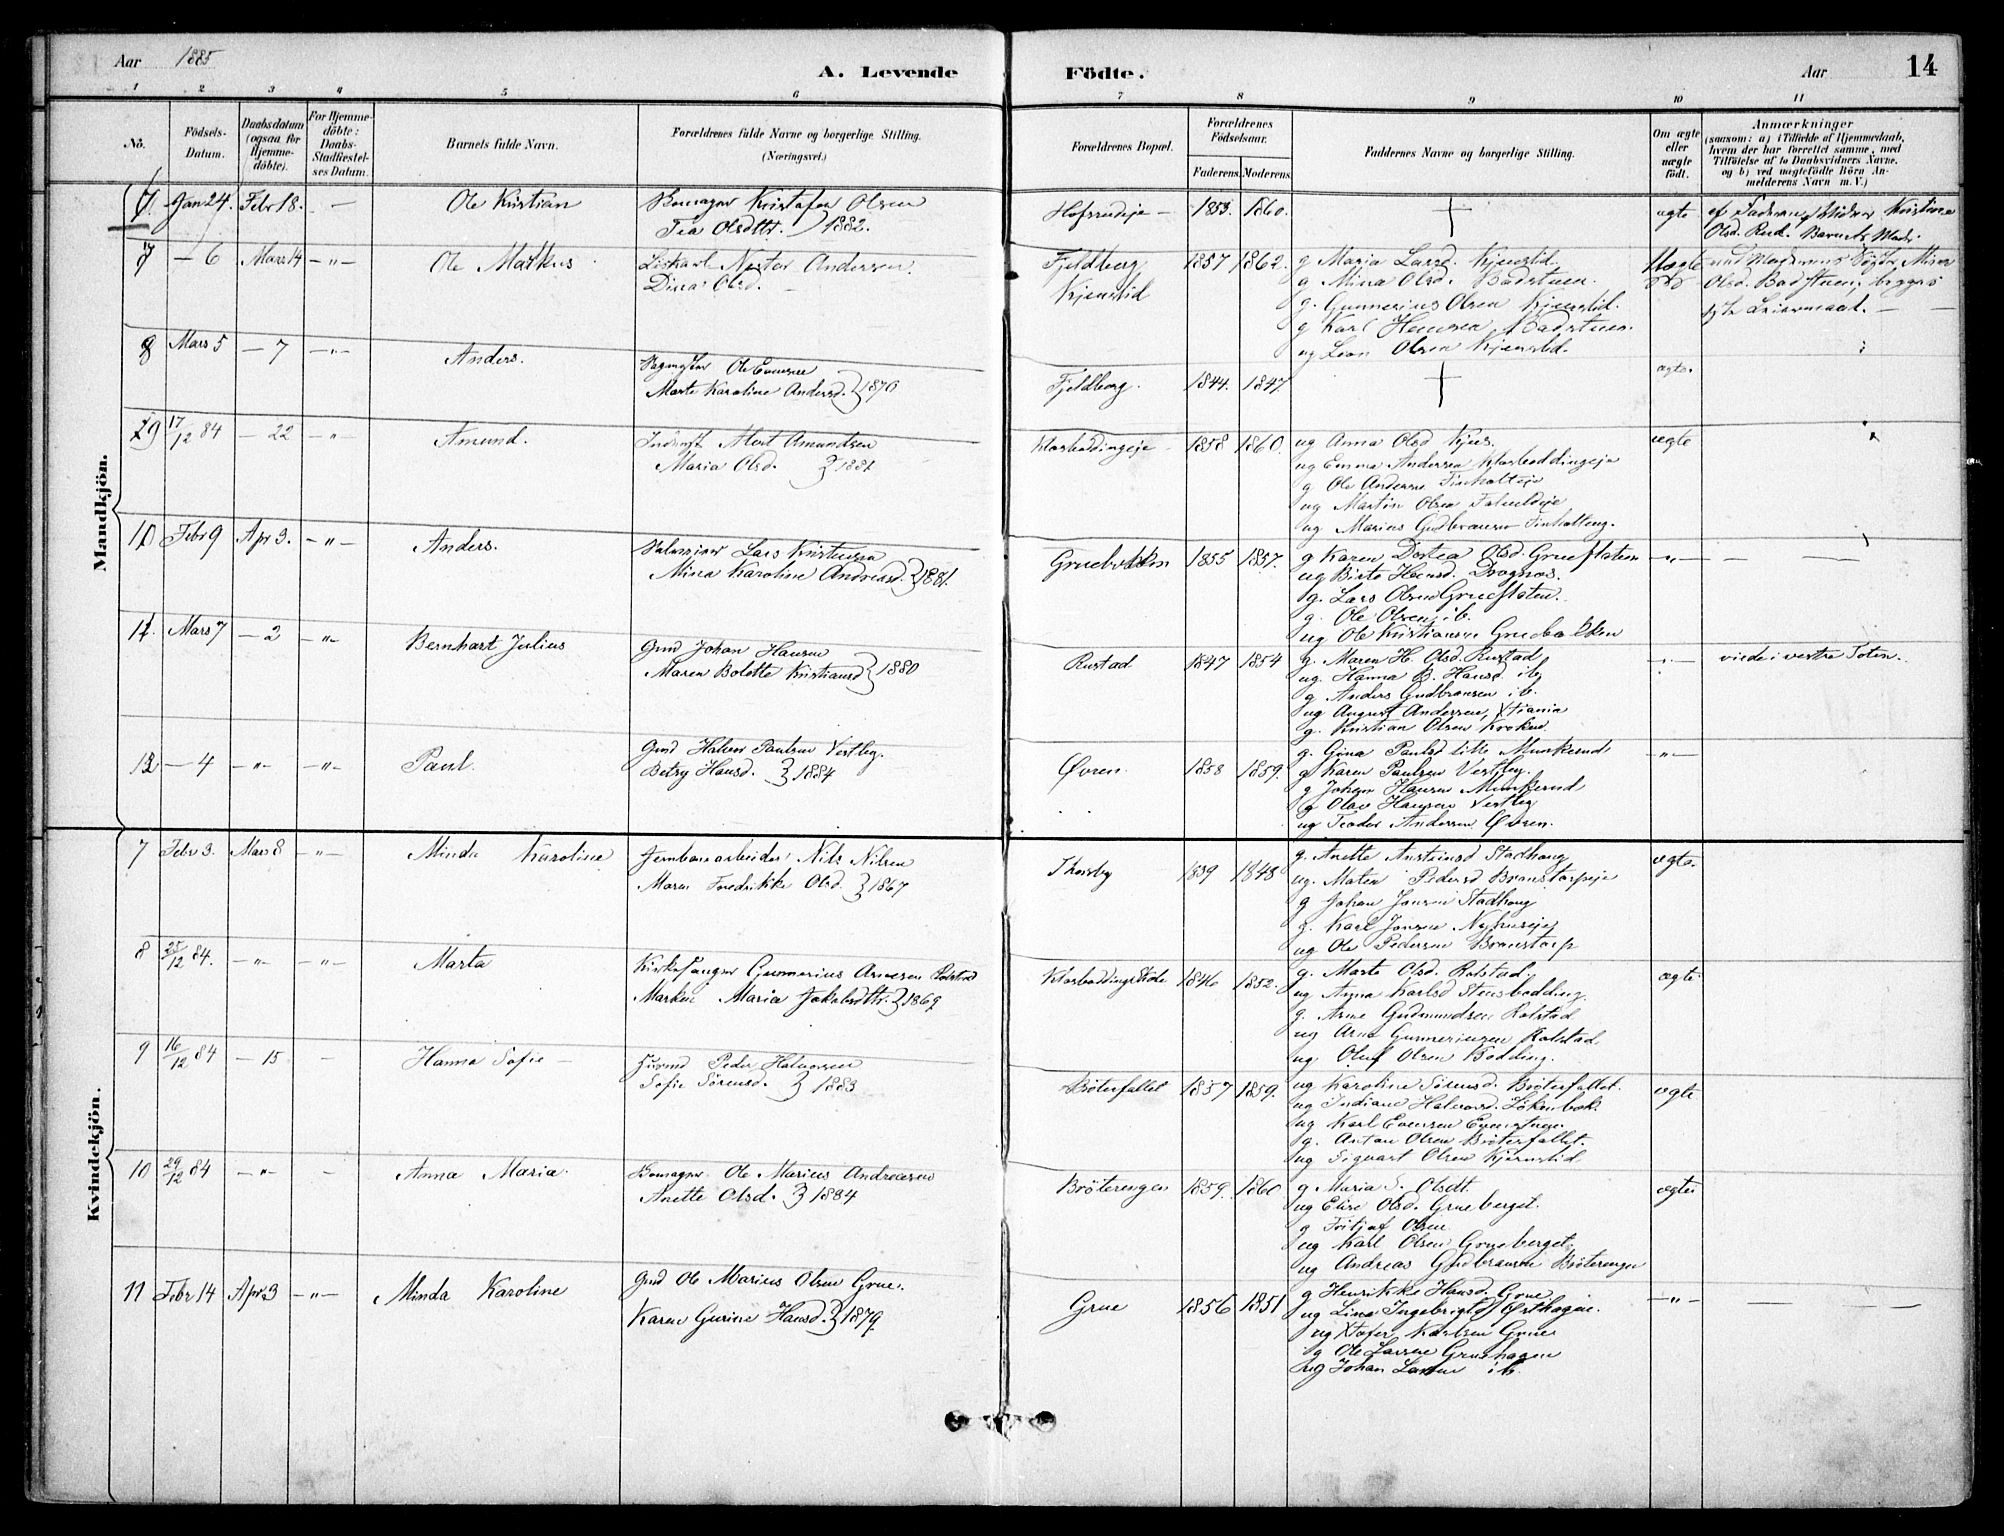 Aar 1885
A. Levende Födte.
Aar
14
1 2 3 4 5 6 7 8 9 10 11
No.
Födsels-Datum.
Daabsdatum (ogsaa for Hjemme-döbte).
For Hjemme-döbte: Daabs-Stadfæstel-ses Datum.
Barnets fulde Navn.
Forældrenes fulde Navne og borgerlige Stilling.
(Næringsvei.)
Forældrenes Bopæl.
Forældrenes Födselsaar.
Faderens. Moderens.
Faddernes Navne og borgerlige Stilling.
Om ægte eller uægte födt.
Anmærkninger
(saasom: a) i Tilfælde af Hjemmedaab, hvem der har forrettet samme, med Tilföielse af to Daabsvidners Navne. og b) ved uægtefödte Börn Anmelderens Navn m. V.)
Mandkjön.
Jan 24. Febr 18. — Ole Kristian
Kristofer Olsen
Tea Olsdtr. } 1882.
1853. 1860. † ægte
Olsd. Rud. Barnets
7 — 6 Mars 14 — " — Ole Markus
Andersen
Dina Olsd. —
Fjeldberg
Kjenstid
1857 1862. Uægte
g Maria Larsd. Kjenstid.
g. Mina Olsd. Badstuen.
g. Gunnerius Olsen Kjenstid.
g Karl Hansen Badstuen.
ug Leon Olsen Kjenstid.
Olsd. Badstuen, begges
8 Mars 5 — 7 — " — Anders.
Ole Evensen
Marte Karoline Andersd. } 1870
Fjeldberg. 1844. 1847 † ægte.
9 17/12 84 — 22 — " Amund.
Amundsen
Maria Olsd. } 1881
1858 1860. ægte
ug Anna Olsd Kjus.
ug Emma Andersen
g Ole Andersen
ug Martin Olsen
ug Marius Gudbransen
10 Febr 9 Apr 3. — " — Anders.
Lars Kristensen
Mina Karoline Andreasd. } 1881.
Gruebakken 1855 1857. — " —
g Karen Dortea Olsd. Grueflaten
ug Birte Hansd. Dragnes.
g. Lars Olsen Grueflaten.
g. Ole Olsen ib.
ug Ole Kristiansen Gruebakken
11 Mars 7 — 2 — " — Bernhart Julius
Gmd Johan Hansen
Maren Bolette Kristiansd } 1880
Rustad 1847 1854 — " — viede i vestre Toten.
g. Maren H. Olsd. Rustad
ug. Hanna B. Hansd ib
g. Anders Gudbransen ib.
ug August Andersen, Xtiania
g. Kristian Olsen Kroken
12 — 4 — " — — " — Paul.
Gmd Halvor Paulsen Vestby.
Betsy Hansd. } 1884
Øvren. 1858 1859. — " —
g. Gina Paulsd lille Munkerud
g Karen Paulsen Vestby.
g Johan Hansen Munkerud
g Olav Hansen Vestby
ug Teodor Andersen Øvren.
Kvindekjön.
7 Febr 3. Mars 8 — " — Minda Karoline
Jernbanearbeider Nils Nilsen
Maren Fredrikke Olsd. } 1867
Thorsby 1839 1848 ægte.
g. Anette Stadhaug
ug. Maten Pedersd Branstorpeje
g Johan Jansen Stadhaug
g. Karl Jansen Nyhuseje
ug Ole Pedersen Branstorp
8 25/12 84. — " — — " — Marta
Kirkesanger Gunnerius Arnesen Rolstad
Marken Maria Jakobsdtr. } 1869
1846 1852. ægte
g. Marte Olsd. Rolstad.
ug Anna Karlsd Stensbodding.
g. Arne Gudmundsen Rolstad
ug Arne Gunneriusen Rolstad
ug Oluf Olsen Bodding.
9 16/12 84 — 15 — Hanna Sofie —
Peder Halvorsen
Sofie Sörensd. } 1883
Bröterfallet 1857 1859. ægte
ug Karoline Sörensd. Bröterfallet.
ug Indiane Halvorsd. Lökenbæk
ug Karl Evensen Evenstuen
g. Anton Olsen Bröterfallet.
ug Sigvart Olsen Kjernstid.
10 29/12 84 — " — — Anna Maria.
Bomager Ole Marius Andreasen
Anette Olsd. } 1884
Bröterengen 1859. 1860 ægte
g Maria S. Olsdt.
ug Elise Olsd. Grueberget.
g Fritjof Olsen
ug Karl Olsen Grueberget.
ug Andreas Gudbransen Bröterengen
11 Febr 14 Apr. 3 — " — Minda Karoline
Gmd Ole Marius Olsen Grue.
Karen Gurine Hansd. } 1879.
Grue 1856 1851 — " —
g Henrikke Hansd. Grue
ug Lina Ingebrigtsd Østhagen.
ug Xtofer Karlsen Grue
g Ole Larsen Gruehagen
ug Johan Larsen ib.